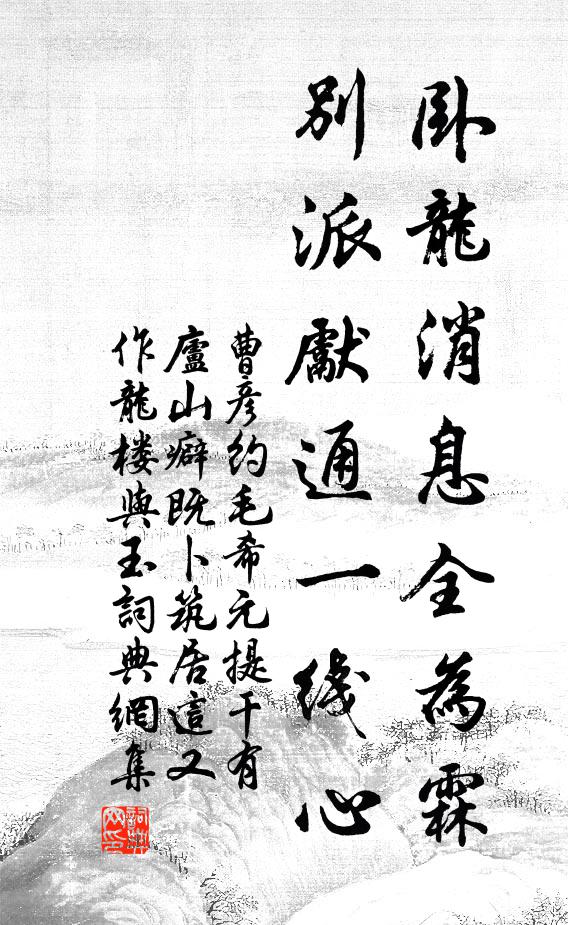 卧龍消息全為霖
別派獻通一綫心
曹彦約毛希元提干有
廬山癖既卜筑居這又
作龍楼與玉詞典網集